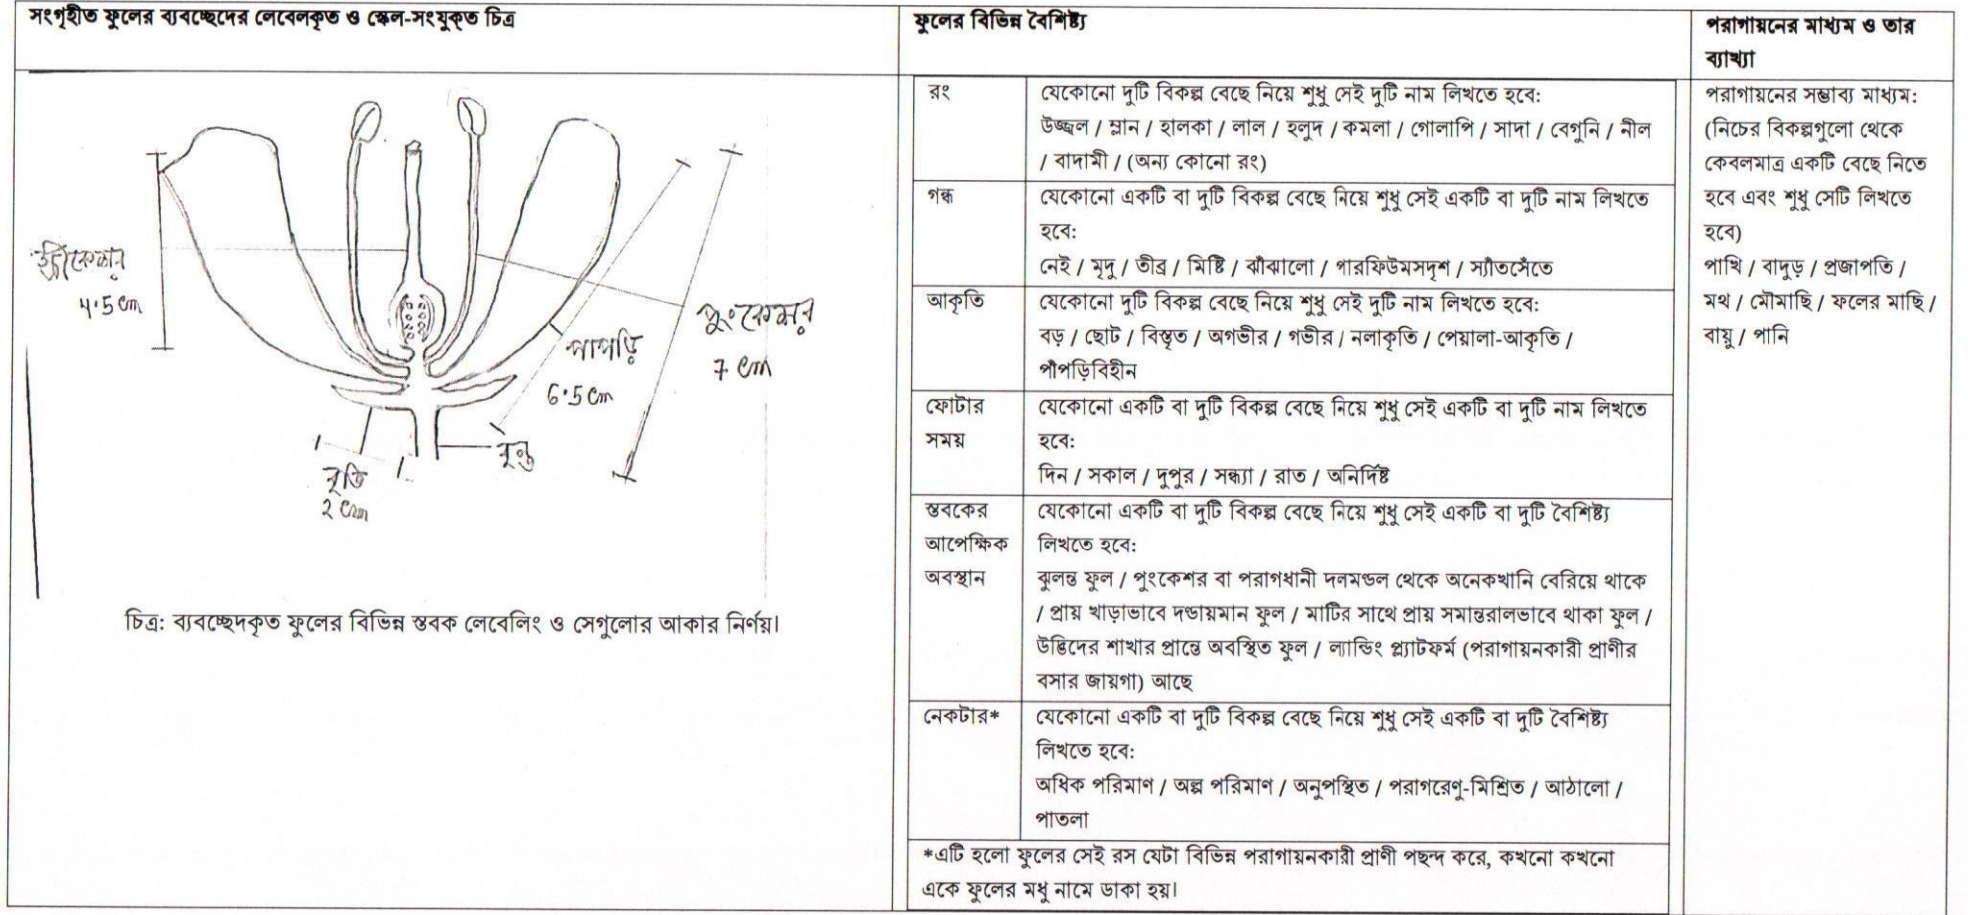 সংগৃহীত ফুলের ব্যবচ্ছেদের লেবেলকৃত ও স্কেল-সংযুক্ত চিত্র
স্ত্রীকেশর
4.5 cm
পাপড়ি
6.5 cm
পুংকেশর
7 cm
বৃতি
2 cm
বৃন্ত
চিত্র: ব্যবচ্ছেদকৃত ফুলের বিভিন্ন স্তবক লেবেলিং ও সেগুলোর আকার নির্ণয়।
ফুলের বিভিন্ন বৈশিষ্ট্য
রং
যেকোনো দুটি বিকল্প বেছে নিয়ে শুধু সেই দুটি নাম লিখতে হবে:
উজ্জ্বল / ম্লান / হালকা / লাল / হলুদ / কমলা / গোলাপি / সাদা / বেগুনি / নীল
/ বাদামী / (অন্য কোনো রং)
গন্ধ
যেকোনো একটি বা দুটি বিকল্প বেছে নিয়ে শুধু সেই একটি বা দুটি নাম লিখতে
হবে:
নেই / মৃদু / তীব্র / মিষ্টি / ঝাঁঝালো / পারফিউমসদৃশ / স্যাঁতসেঁতে
আকৃতি
যেকোনো দুটি বিকল্প বেছে নিয়ে শুধু সেই দুটি নাম লিখতে হবে:
বড় / ছোট / বিস্তৃত / অগভীর / গভীর / নলাকৃতি / পেয়ালা-আকৃতি /
পাঁপড়িবিহীন
ফোটার
সময়
যেকোনো একটি বা দুটি বিকল্প বেছে নিয়ে শুধু সেই একটি বা দুটি নাম লিখতে
হবে:
দিন / সকাল / দুপুর / সন্ধ্যা / রাত / অনির্দিষ্ট
স্তবকের
আপেক্ষিক
অবস্থান
যেকোনো একটি বা দুটি বিকল্প বেছে নিয়ে শুধু সেই একটি বা দুটি বৈশিষ্ট্য
লিখতে হবে:
ঝুলন্ত ফুল / পুংকেশর বা পরাগধানী দলমন্ডল থেকে অনেকখানি বেরিয়ে থাকে
/ প্রায় খাড়াভাবে দন্ডায়মান ফুল / মাটির সাথে প্রায় সমান্তরালভাবে থাকা ফুল /
উদ্ভিদের শাখার প্রান্তে অবস্থিত ফুল / ল্যান্ডিং প্ল্যাটফর্ম (পরাগায়নকারী প্রাণীর
বসার জায়গা) আছে
নেকটার*
যেকোনো একটি বা দুটি বিকল্প বেছে নিয়ে শুধু সেই একটি বা দুটি বৈশিষ্ট্য
লিখতে হবে:
অধিক পরিমাণ / অল্প পরিমাণ / অনুপস্থিত / পরাগরেণু-মিশ্রিত / আঠালো /
পাতলা
*এটি হলো ফুলের সেই রস যেটা বিভিন্ন পরাগায়নকারী প্রাণী পছন্দ করে, কখনো কখনো
একে ফুলের মধু নামে ডাকা হয়।
পরাগায়নের মাধ্যম ও তার
ব্যাখ্যা
পরাগায়নের সম্ভাব্য মাধ্যম:
(নিচের বিকল্পগুলো থেকে
কেবলমাত্র একটি বেছে নিতে
হবে এবং শুধু সেটি লিখতে
হবে)
পাখি / বাদুড় / প্রজাপতি /
মথ / মৌমাছি / ফলের মাছি /
বায়ু / পানি